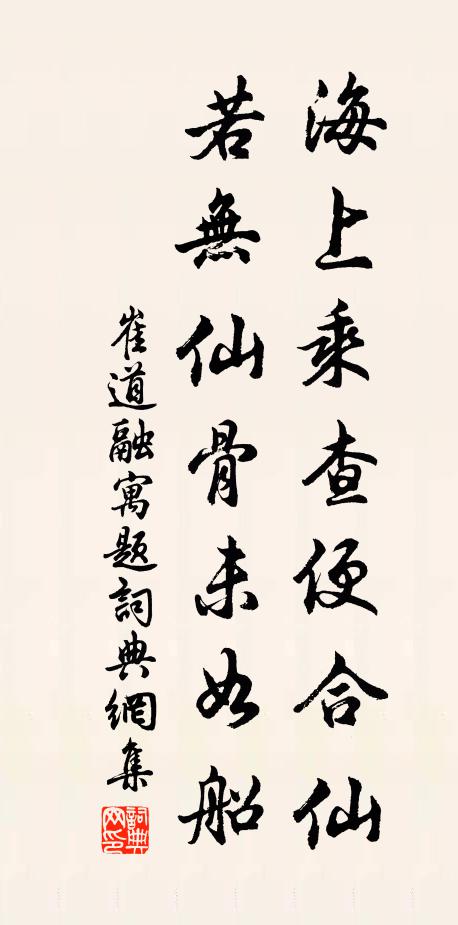 海上乘查便合仙
若無仙骨未如船
崔道融寓题詞典網集
詞典网印